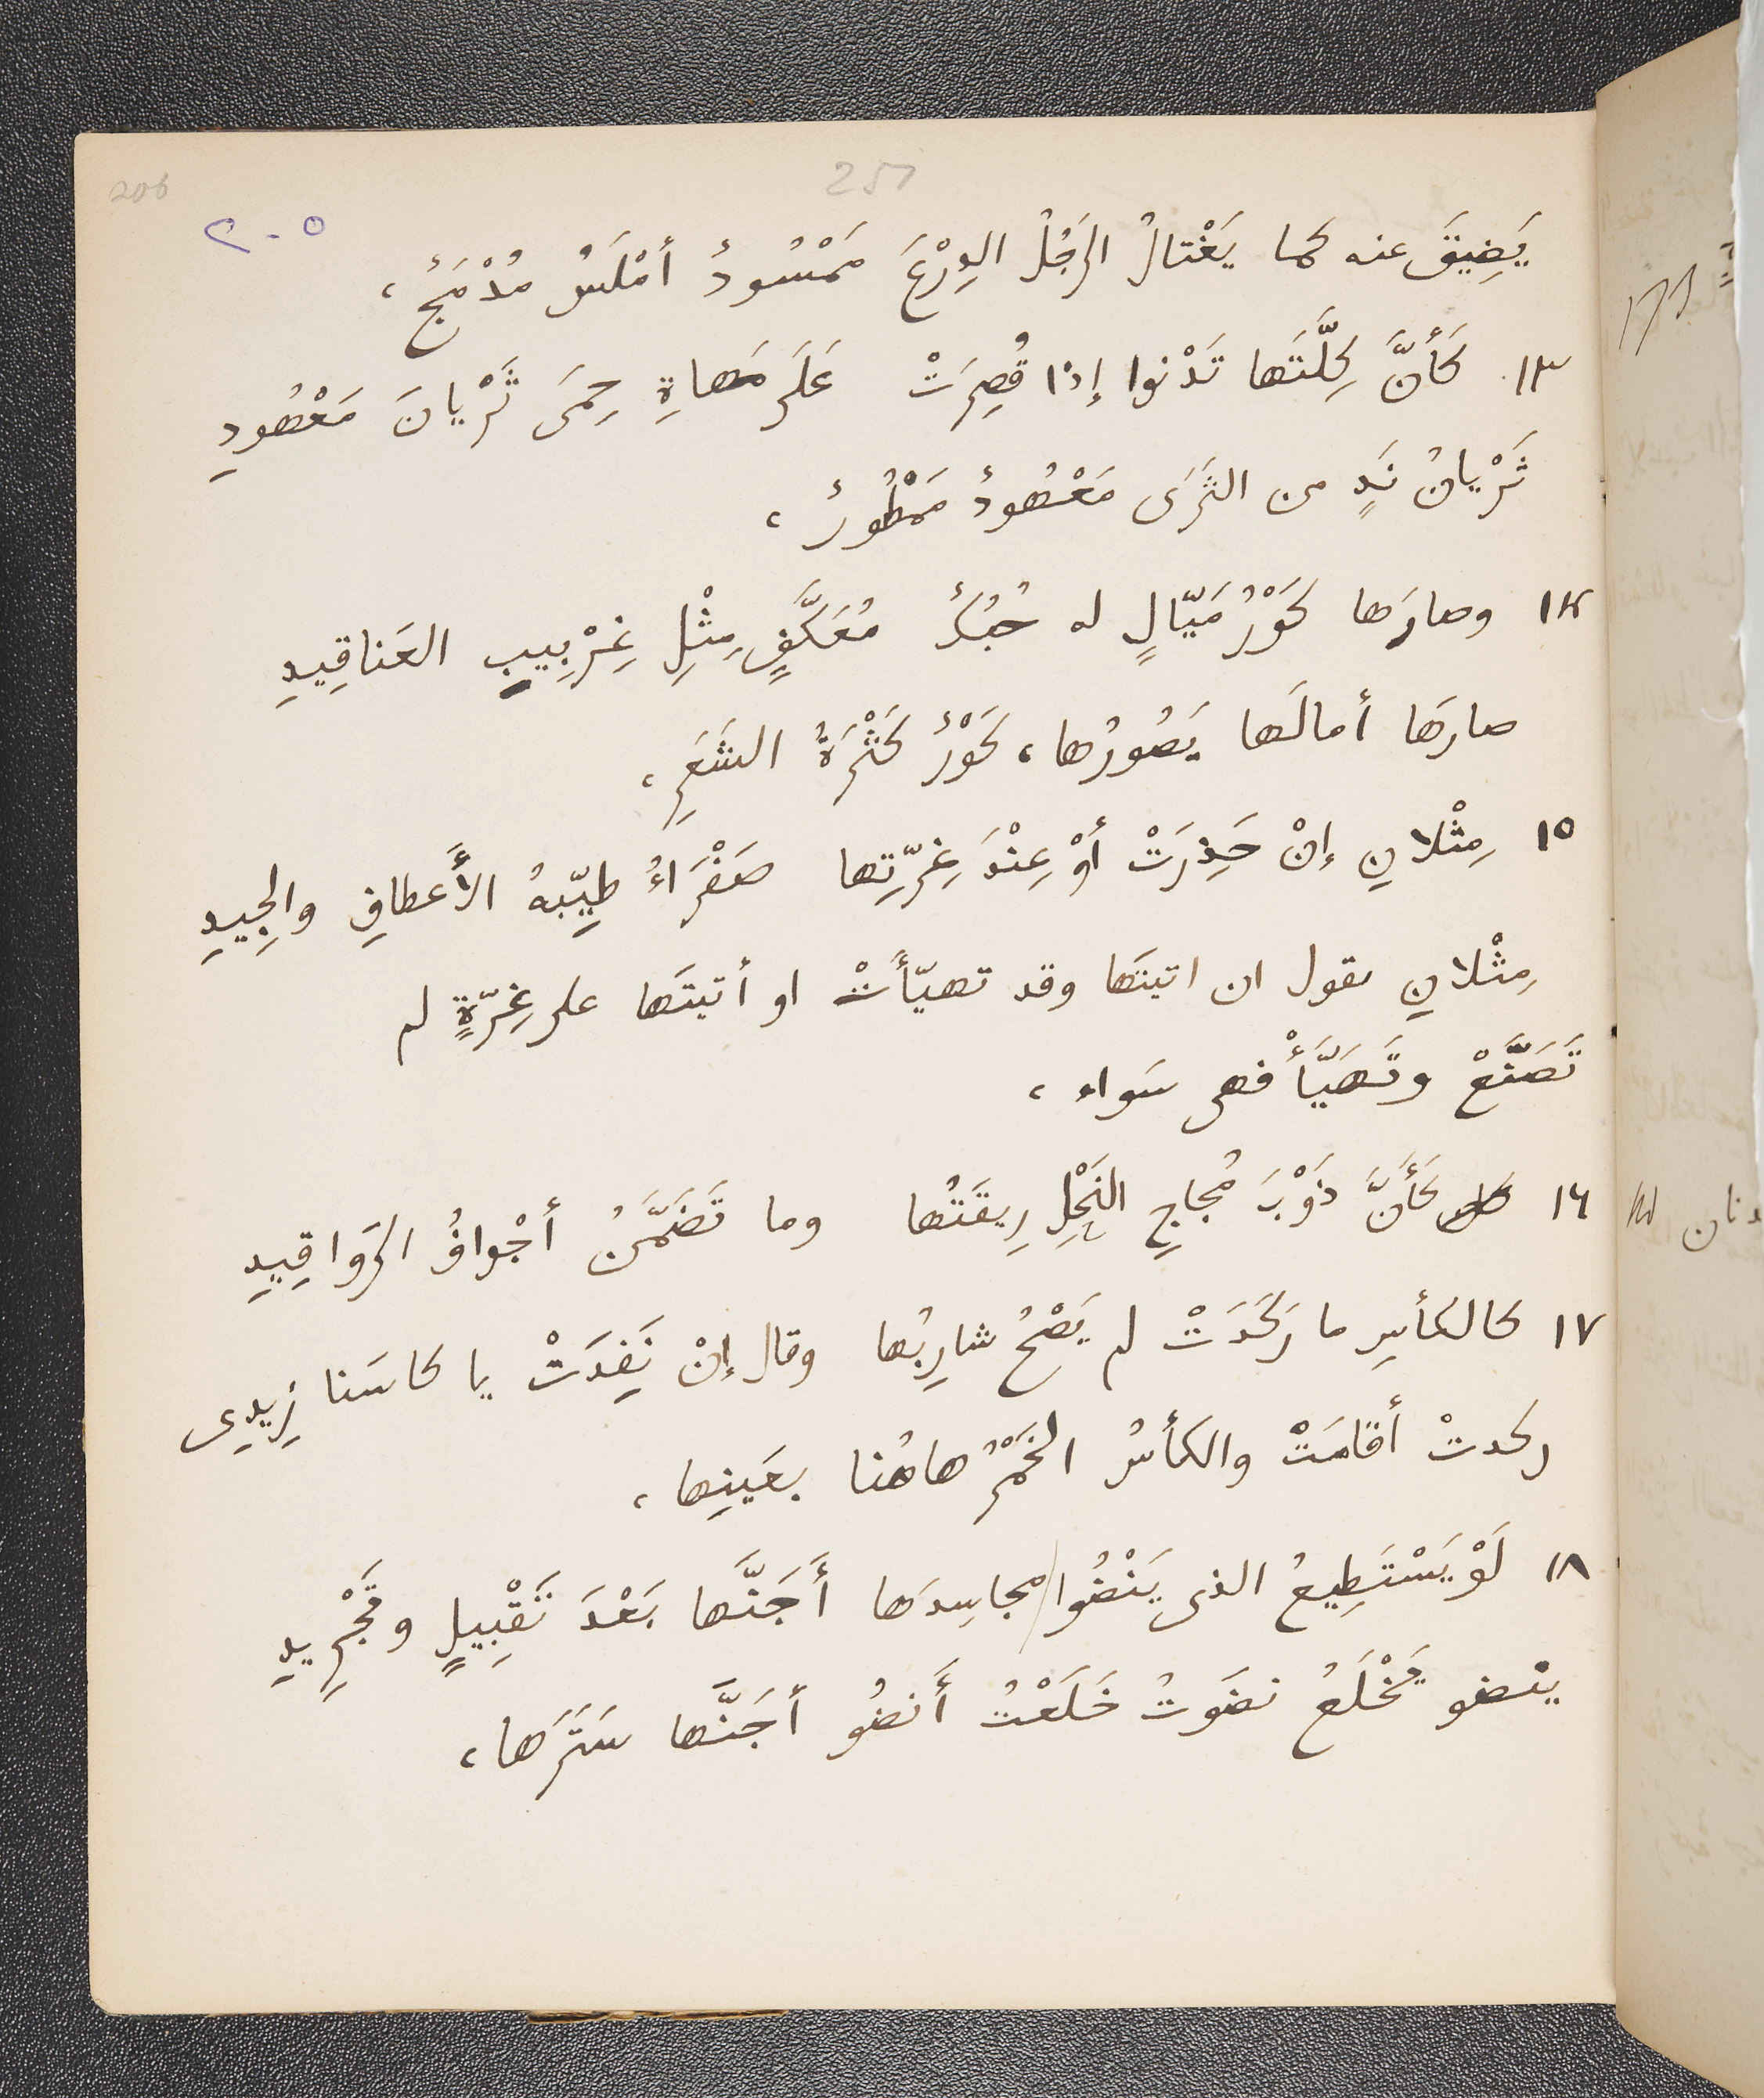 206
257
٢٠٥
يَضِيقَ عنه كما يَغْتالُ الرَجُلُ الدِرْعَ مَمْسُودٌ أمْلَسُ مُدْمَجٌ ،
١٣ كَأَنَّ كِلَّتَها تَدْنوا إذا قُصِرَتْ عَلَى مَهاةِ حِمَى ثَرْيانَ مَعْهُودِ
ثَرْيانُ نَدٍ من الثَرَى مَعْهُودٌ مَمْطُورٌ ،
١٤ وصارَها كَوْرُ مَيّالٍ له حُبُكٌ مُعَكَّفٍ مِثْلِ غِرْبِيبِ العَناقِيدِ
صارَها أمالَها يَصُورُها ، كَوْرٌ كَثْرَةُ الشَعَرِ ،
١٥ مِثْلانِ إنْ حَذِرَتْ أوْ عِنْدَ غِرّتِها صَفْرَاءُ طيّبةُ الأَعطافِ والجِيدِ
مِثْلانِ يقول ان اتيتَها وقد تهيّأَتْ او أتيتَها على غِرّةٍ لم
تَصَنَّعْ وتَهَيَّأْ فهى سَواء ،
١٦ كَأَنَّ ذَوْبَ مُجاجِ النَحْلِ رِيقَتُها وما تَضَمَّنُ أجْوافُ الرَواقِيدِ
١٧ كالكأسِ ما رَكَدَتْ لم يَصْحُ شارِبُها وقال إنْ نَفِدَتْ يا كاسَنا زِيدِى
ركدتْ أقامَتْ والكأسُ الخَمْرُ هاهُنا بعَينِها ،
١٨ لَوْ يَسْتَطِيعُ الذى يَنْضُوا مجاسِدَها أَجَنَّها بَعْدَ تَقْبِيلٍ وتَجْرِيدِ
ينضو يَخْلَعُ نضَوتُ خَلَعْتُ أَنضُو أجَنَّها سَتَرَها ،